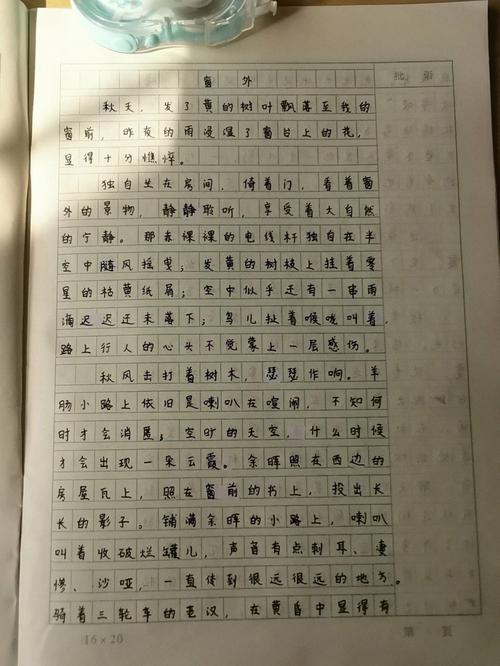 窗外
批 第
秋天，发了黄的树叶飘落至我的
窗前，昨夜的雨浸湿了窗台上的花，
显得十分憔悴。
独自坐在房间，倚着门，看着窗
外的景物，静静聆听，享受着大自然
的宁静。那赤裸裸的电线杆独自在半
空中随风摇曳；发黄的树枝上挂着零
星的枯黄纸屑；空中似乎还有一串雨
滴迟迟还未落下；鸟儿扯着喉咙叫着，
路上行人的心头不觉蒙上一层感伤。
秋风击打着树木，瑟瑟作响。羊
肠小路上依旧是喇叭在喧闹，不知何
时才会消匿；空旷的天空，什么时候
才会出现一朵云霞。余晖照在西边的
房屋瓦上，照在窗前的书上，投出长
长的影子。铺满余晖的小路上，喇叭
叫着收破烂罐儿，声音有点刺耳、凄
惨、沙哑，一直传到很远很远的地方。
骑着三轮车的老汉，在黄昏中显得有
16×20
第 页